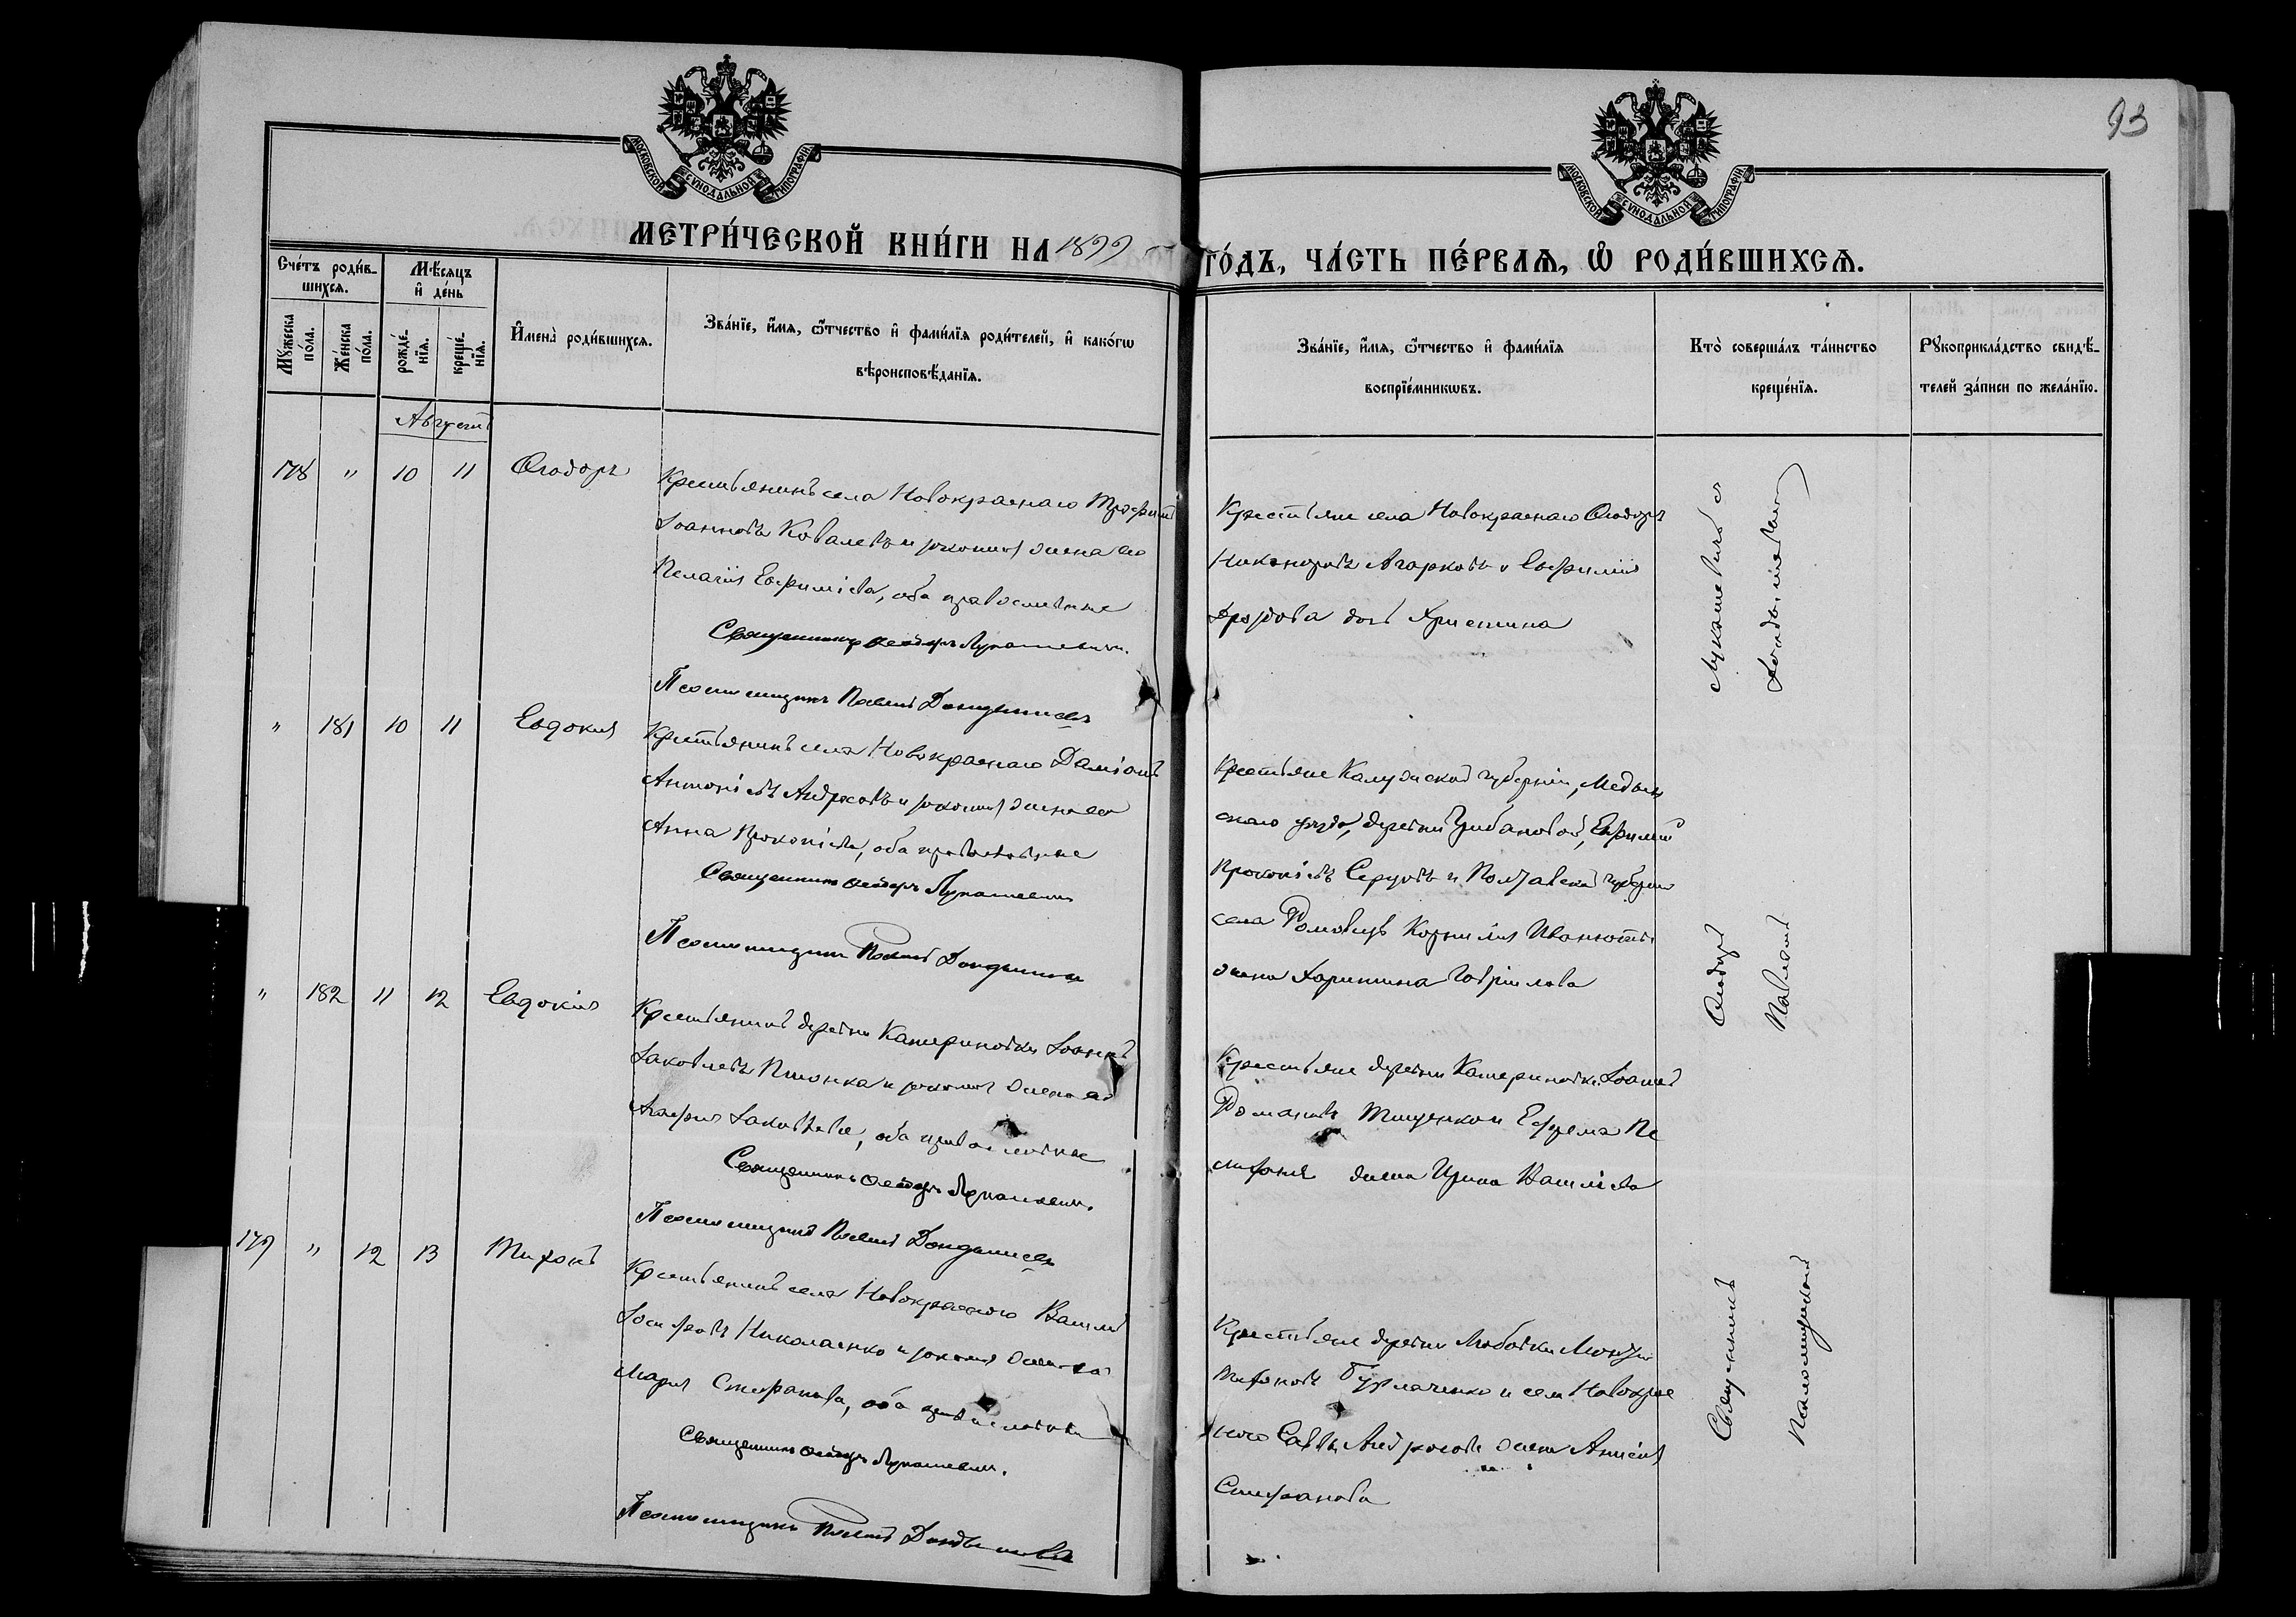 93
МОСКОВСКОЙ СУНОДАЛЬНОЙ ТИПОГРАФІИ
МОСКОВСКОЙ СУНОДАЛЬНОЙ ТИПОГРАФІИ
МЕТРИ́ЧЕСКОЙ КНИ́ГИ НА 1899 ГО́ДЪ, ЧА́СТЬ ПЕ́РВАѦ, Ѡ РОДИ́ВШИХСѦ.
Сче́тъ роди́в-
шихсѧ.
Мѣ́сѧцъ
и҆ де́нь
Мꙋ́жеска
по́ла.
Же́нска
по́ла.
рожде́-
нїѧ.
креще́-
нїѧ.
И҆мена̀ роди́вшихсѧ.
Зва́нїе, и҆́мѧ, ѻ҆́тчество и҆ фами́лїѧ роди́телей, и҆ како́гѡ
вѣроисповѣ́данїѧ.
Зва́нїе, и҆́мѧ, ѻ҆́тчество и҆ фами́лїѧ
воспрїе́мникѡвъ.
Кто̀ соверша́лъ та́инство
креще́нїѧ.
Рꙋкоприкла́дство свидѣ́-
телей за́писи по жела́нїю.
Августъ
178 " 10 11 Ѳеодоръ
Крестьянинъ села Новокраснаго Трофимъ
Іоанновъ Ковалевъ и законная жена его
Пелагія Евфиміева, оба православные
Священникъ Ѳеодоръ Лукашевичъ.
Псаломщикъ Павелъ
Крестьяне села Новокраснаго Ѳеодоръ
Никаноровъ Агарковъ и Евфимія
дочь Христина
" 181 10 11 Евдокия
Крестьянинъ села Новокраснаго Даміанъ
Антоніевъ Андросовъ и законная жена его
Анна Прокопіева, оба православные
Священникъ Ѳеодоръ Лукашевичъ
Псаломщикъ Павелъ
Крестьяне Калужской губерніи, Медын
скаго уѣзда, деревни Грибановой, Евфимій
Прокопіевъ и Полтавской губерніи
села Корнилія
жена Харитина Гавріилова
" 182 11 12 Евдокія
Крестьянинъ деревни Катериновки Іоаннъ
Іаковлевъ Пшонка и законная жена его
Агафия Іаковлева, оба православные
Священникъ Ѳеодоръ Лукашевичъ.
Псаломщикъ Павелъ
Крестьяне деревни Катериновки Іоаннъ
Романовъ Тищенко и Ефрема
жена Ирина Васильева
179 " 12 13 Тихонъ
Крестьянинъ села Новокраснаго Василій
Іосифовъ Николаенко и законная жена его
Мария Стефанова, оба православные
Священникъ Ѳеодоръ Лукашевичъ.
Псаломщикъ Павелъ
Крестьяне деревни Любовки
Тихоновъ Бурлаченко и села Новокрас
наго Саввы Андросова жена
Стефанова
Священникъ Ѳеодоръ Лукашевичъ съ
Псаломщикомъ Павломъ